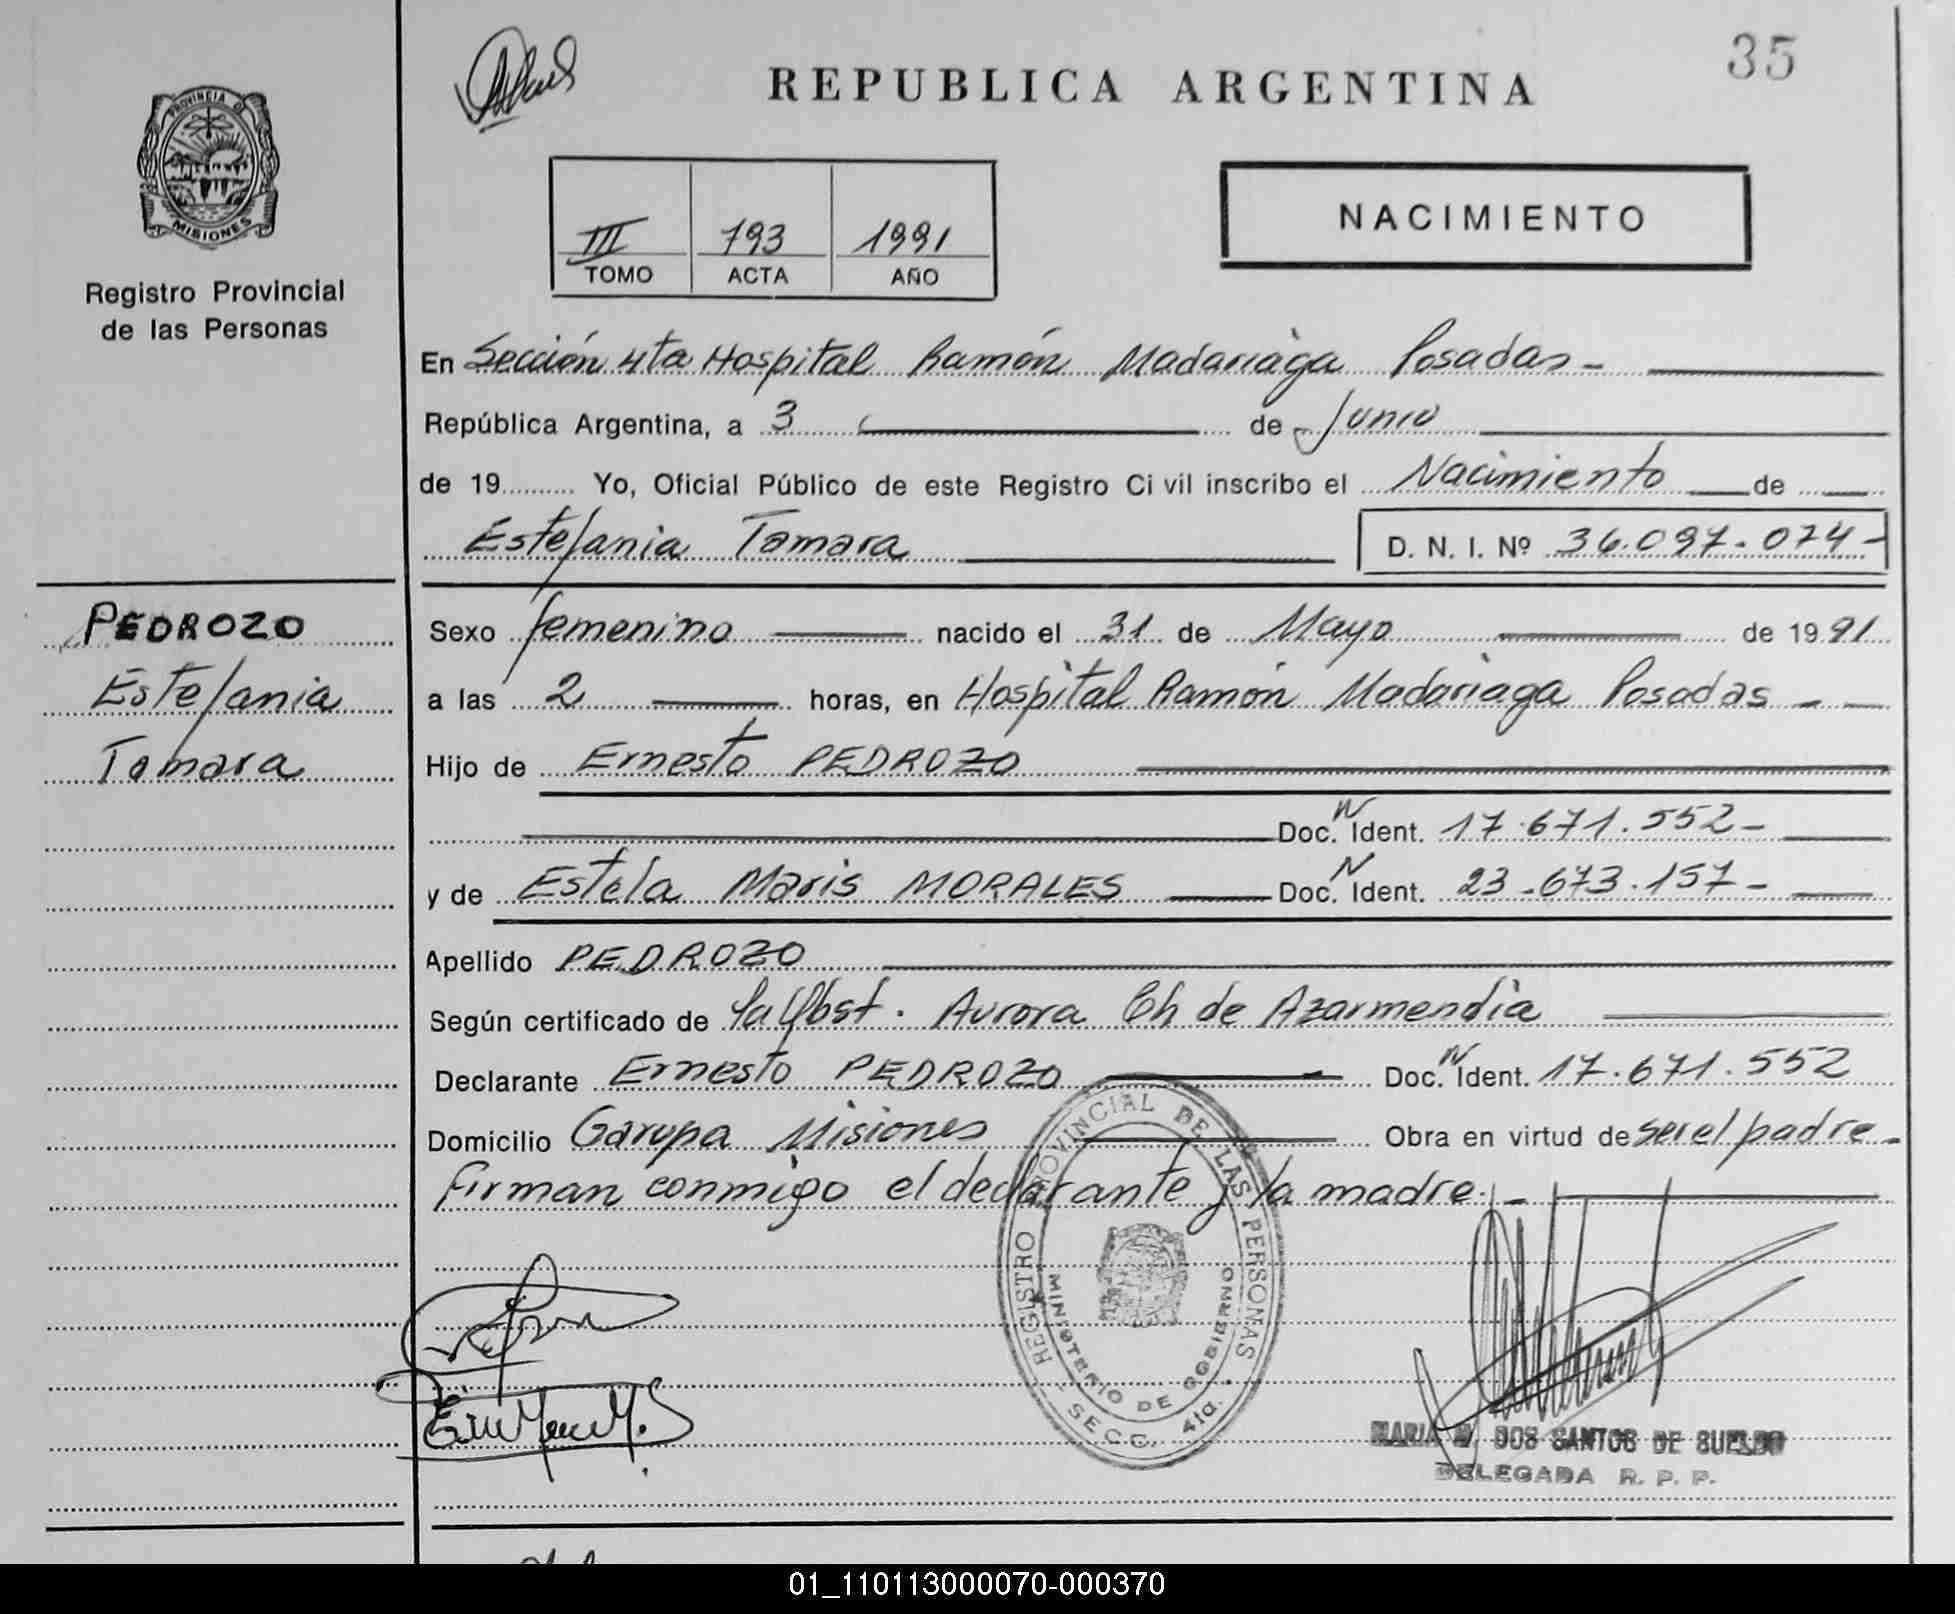 35
REPUBLICA ARGENTINA
PROVINCIA DE
MISIONES
Registro Provincial
de las Personas
III 793 1991
TOMO ACTA AÑO
NACIMIENTO
En Sección 4ta Hospital Ramón Madariaga Posadas -
República Argentina, a 3 de Junio
de 19 Yo, Oficial Público de este Registro Civil inscribo el Nacimiento de
Estefania Tamara D. N. I. Nº 36.097.074-
PEDROZO
Estefania
Tamara
Sexo femenino nacido el 31 de Mayo de 1991
a las 2 horas, en Hospital Ramón Madariaga Posadas -
Hijo de Ernesto PEDROZO
Doc. N Ident. 17.671.552-
y de Estela Maris MORALES Doc. N Ident. 23.673.157-
Apellido PEDROZO
Según certificado de la Obst. Aurora Ch de Azarmendia
Declarante Ernesto PEDROZO Doc. N Ident. 17.671.552
Domicilio Garupa Misiones Obra en virtud de ser el padre-
firman conmigo el declarante y la madre.-
REGISTRO PROVINCIAL DE LAS PERSONAS
MINISTERIO DE GOBIERNO
SECC. 4ta.
MARIA DOS SANTOS DE SUELDO
DELEGADA R. P. P.
01_110113000070-000370